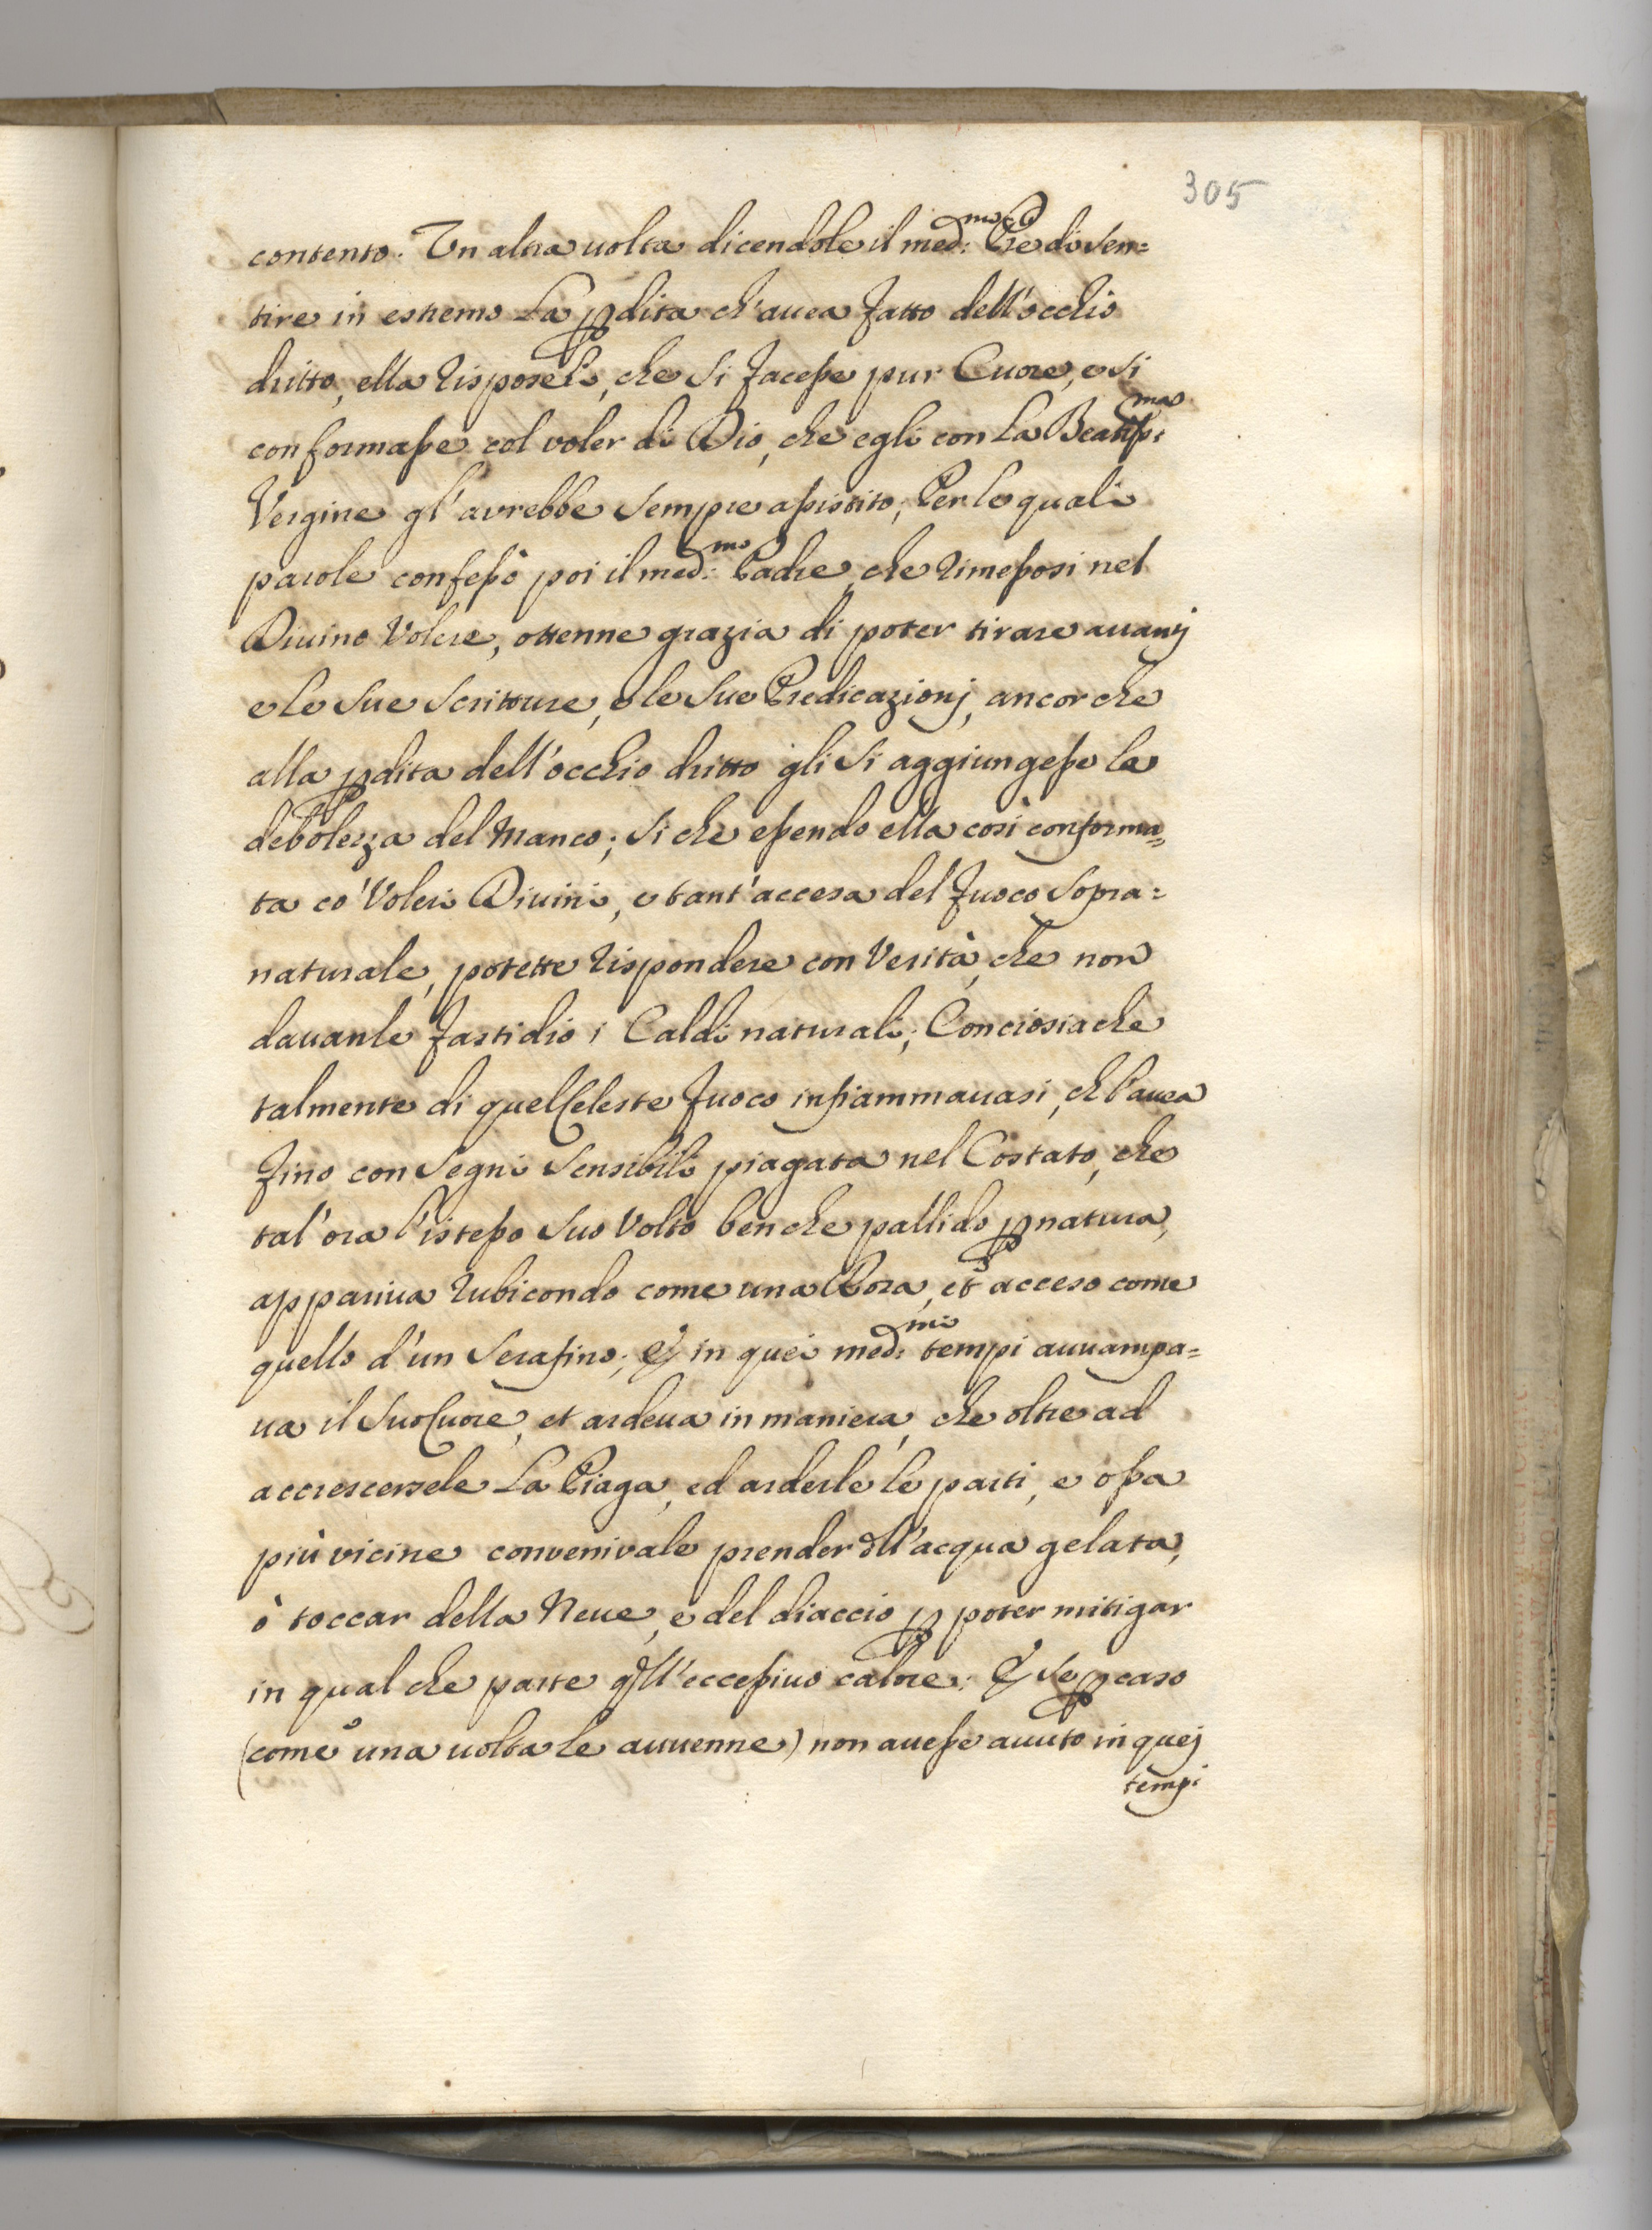 305
contento. Un altra uolta dicendole il med:mo Pre di sen=
tire in estremo la pdita ch'auea fatto dell'occhio
dritto, ella risposeli, che si facesse pur Cuore, e si
conformasse col voler di Dio, che egli con la Beatiss:ma
Vergine gl'avrebbe sempre assistito; Per le quali
parole confessò poi il med:mo Padre, che rimessosi nel
Diuino Volere, ottenne grazia di poter tirare auanzj
e le sue scritture, e le sue Predicazionj, ancor che
alla pdita dell'occhio dritto gli si aggiungesse la
debolezza del Manco; si che essendo ella così conforma=
ta co' Voleri Diuini, e tant'accesa del fuoco sopra=
naturale, potette rispondere con Verità, che non
dauanle fastidio i Caldi naturali; Conciosiache
talmente di quel Celeste fuoco infiammauasi, ch l'auea
fino con segni sensibili piagata nel Costato, che
tal'ora l'istesso suo Volto benche pallido p natura,
appariua rubicondo come una Rosa, et acceso come
quello d'un Serafino; Et in quei med:mi tempi auuampa=
ua il suo Cuore, et ardeua in maniera, che oltre ad
accrescersele la Piaga, ed arderle le parti, e ossa
più vicine convenivale prender dll'acqua gelata,
ò toccar della Neue, e del diaccio p poter mitigar
in qual che parte qll'eccessiuo calore: Et se p caso
(come una uolta le auuenne) non auesse auuto in quej
tempi